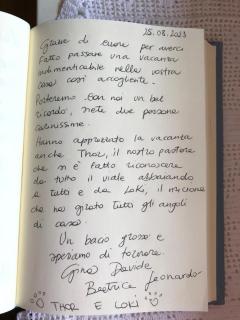 25.08.2023
Grazie di cuore per averci
fatto passare una vacanza
indimenticabile nella vostra
casa così accogliente.
Porteremo con noi un bel
ricordo, siete due persone
carinissime.
Hanno apprezzato la vacanza
anche Thor, il nostro pastore
che si è fatto riconoscere
da tutto il viale abbaiando
a tutti e da Loki, il micione
che ha girato tutti gli angoli
di casa.
Un bacio grosso e
speriamo di tornare.
Gina Davide
Beatrice Leonardo
THOR E LOKI